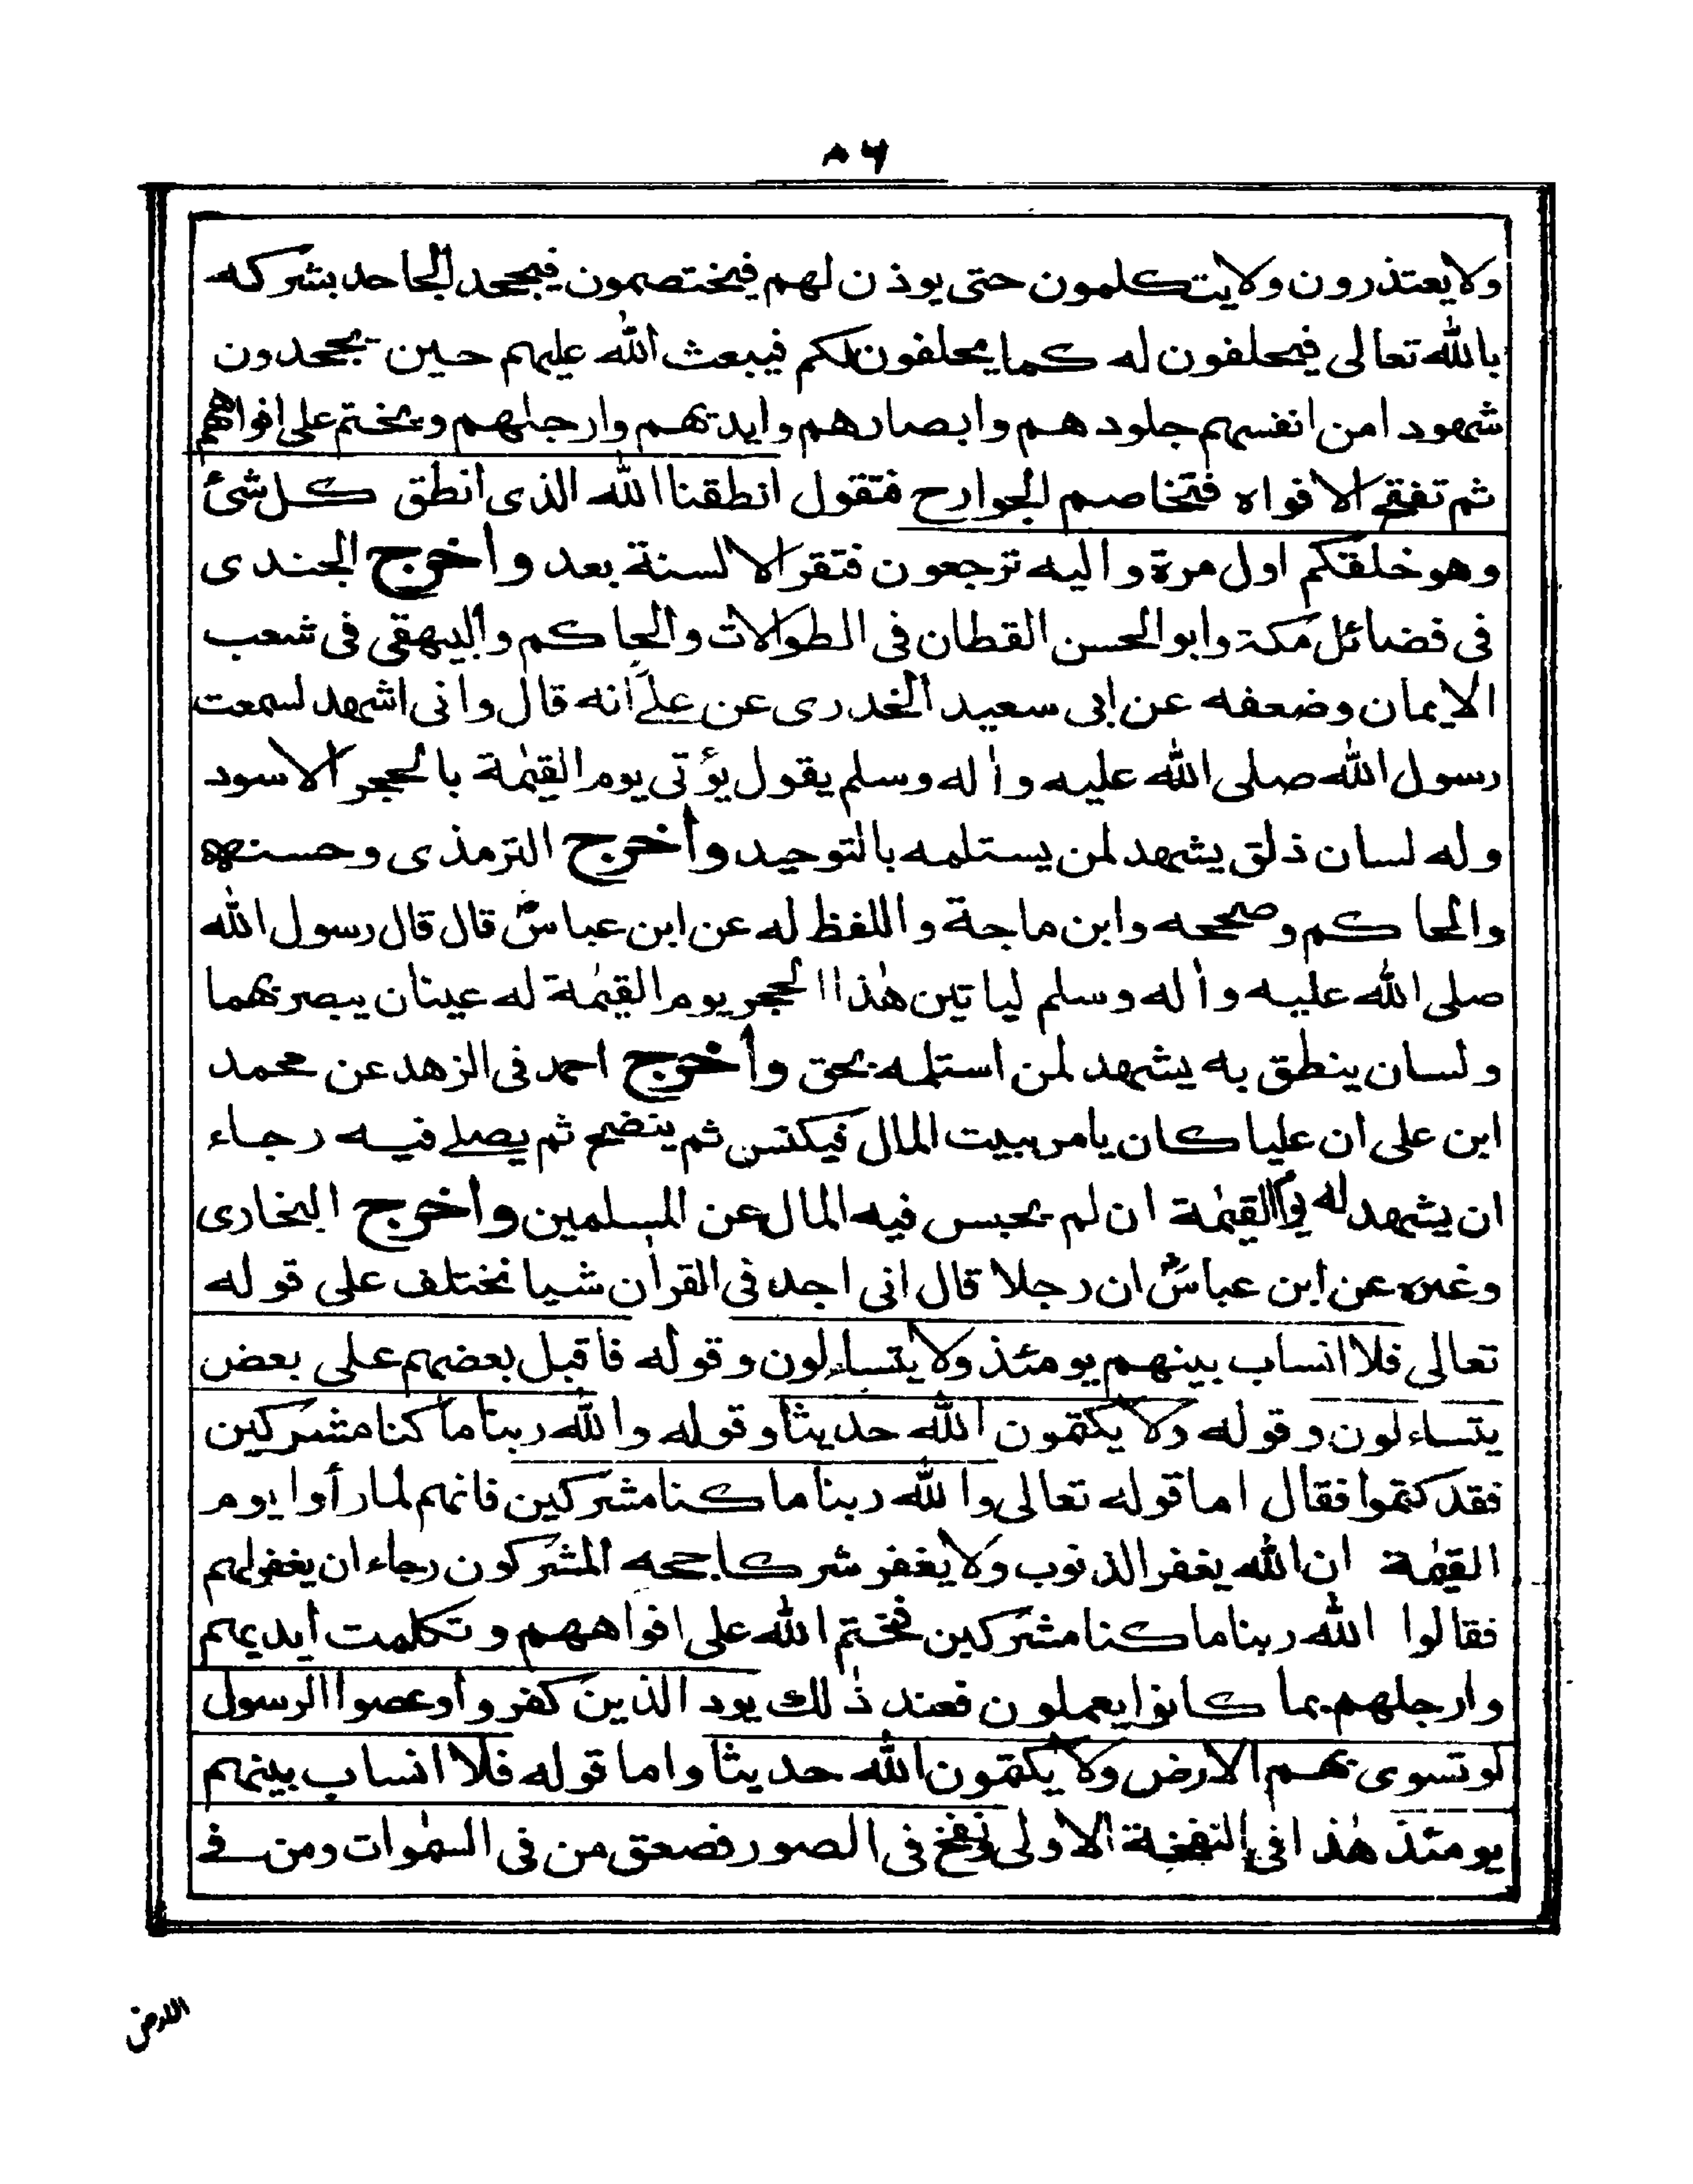 ٨٦
ولا يعتذرون ولا يتكلمون حتى يوذن لهم فيختصمون فيجحد الجاحد بشركه
بالله تعالى فيحلفون له كما يحلفون لكم فيبعث الله عليهم حين يجحدون
شهودا من انفسهم جلودهم وابصارهم وايديهم وارجلهم ويختم على افواههم
ثم تفتح الافواه فتخاصم الجوارح فتقول انطقنا الله الذى انطق كل شئ
وهو خلقكم اول مرة واليه ترجعون فتقر الالسنة بعد واخرج الجندى
فى فضائل مكة وابو الحسن القطان فى الطوالات والحاكم والبيهقى فى شعب
الايمان وضعفه عن ابى سعيد الخدرى عن على انه قال وانى اشهد لسمعت
رسول الله صلى الله عليه واٰله وسلم يقول يؤتى يوم القيٰمة بالحجر الاسود
وله لسان ذلق يشهد لمن يستلمه بالتوحيد واخرج الترمذى وحسنه
والحاكم وصححه وابن ماجة واللفظ له عن ابن عباسؓ قال قال رسول الله
صلى الله عليه واٰله وسلم لياتين هٰذا الحجر يوم القيٰمة له عينان يبصر بهما
ولسان ينطق به يشهد لمن استلمه بحق واخرج احمد فى الزهد عن محمد
ابن على ان عليا كان يامر ببيت المال فيكنس ثم ينضح ثم يصلے فيه رجاء
ان يشهد له يوم القيٰمة ان لم يحبس فيه المال عن المسلمين واخرج البخارى
وغيره عن ابن عباسؓ ان رجلا قال انى اجد فى القراٰن شيا تختلف على قوله
تعالى فلا انساب بينهم يومئذ ولا يتساءلون وقوله فاقبل بعضهم على بعض
يتساءلون وقوله ولا يكتمون الله حديثا وقوله والله ربنا ما كنا مشركين
فقد كتموا فقال اما قوله تعالى والله ربنا ما كنا مشركين فانهم لما رأوا يوم
القيٰمة ان الله يغفر الذنوب ولا يغفر شركا جحه المشركون رجاء ان يغفر لهم
فقالوا الله ربنا ما كنا مشركين فختم الله على افواههم وتكلمت ايديهم
وارجلهم بما كانوا يعملون فعند ذٰلك يود الذين كفروا وعصوا الرسول
لو تسوى بهم الارض ولا يكتمون الله حديثا واما قوله فلا انساب بينهم
يومئذ هٰذا فى النفخة الاولى ونفخ فى الصور فصعق من فى السمٰوات ومن فے
الارض